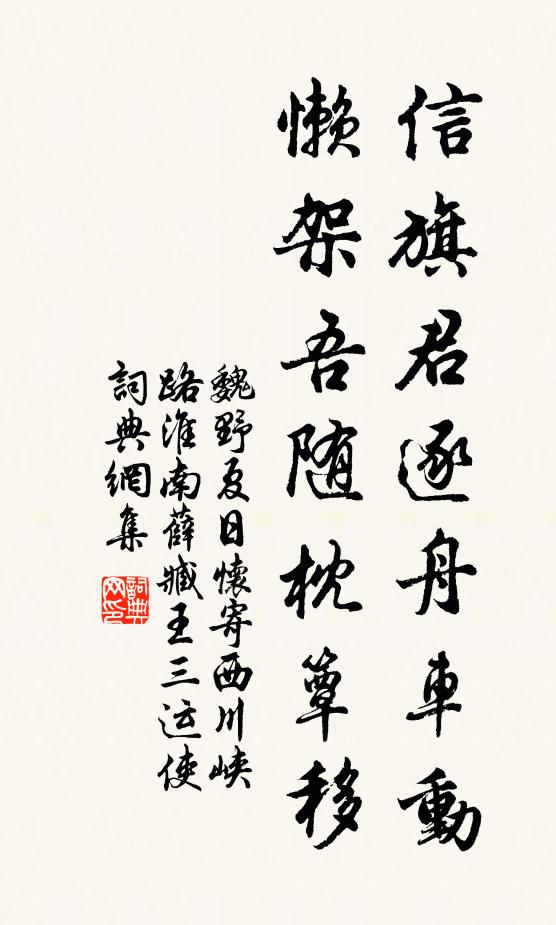 信旗君逐舟車動
懶架吾随枕簟移
魏野夏日懷寄西川峡
路淮南薛臧王三运使
詞典網集
詞典网印